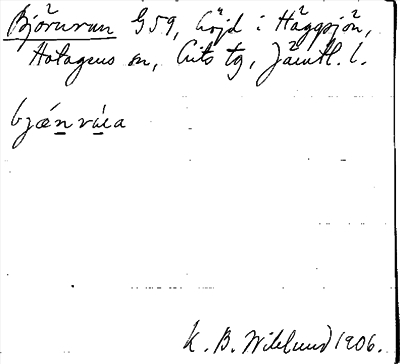 Björurun G59, höjd i Häggsjön,
Hotagens sn, Lits tg, Jämtl. l.
bjǽnváia
K. B. Wiklund 1906.